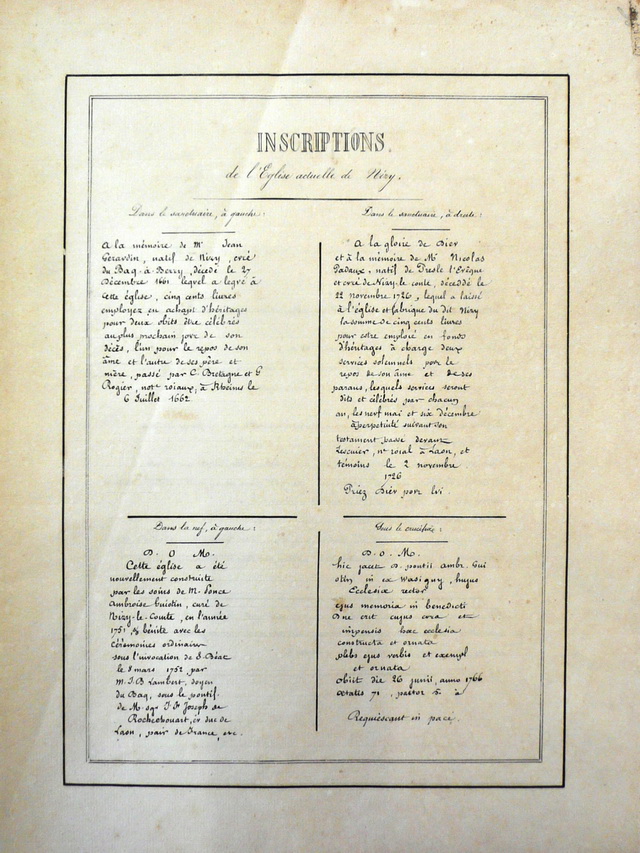 INSCRIPTIONS.
de l'Eglise actuelle de Nizy.
Dans le sanctuaire, à gauche:
A la mémoire de Mr Jean
Gérardin, natif de Nizy, curé
du Baq-à-Berry, décédé le 27
Décembre 1661 lequel a legré à
cette église, cinq cents livres
employez en achapt d'héritages
pour deux obits être célébrés
au plus prochain jovr de son
décès, l'un pour le repos de son
âme et l'autre de ses père et
mère, passé par C. Bretagne et G
Rogier, notes roiaux, à Rheims le
6 Juillet 1662
Dans le sanctuaire, à droite:
A la gloire de Diev
et à la mémoire de Mr Nicolas
Padaux, natif de Presle l'Evêque
et curé de Nizy-le-conte, décédé le
22 novembre 1726, lequel a laissé
à l'église et fabrique du dit Nizy
la somme de cinq cents livres
pour estre emploié en fonds
d'héritages à charge deux
services solemnels pour le
repos de son âme et de ses
parans, lesquels services seront
dits et célébrés par chacun
an, les nevf mai et six décembre
à perpétuité suivant son
testament passé devant
Lescuier, nre roial à Laon, et
témoins le 2 novembre
1726
Priez Diev povr lvi.
Dans la nef, à gauche:
D. O. M.
Cette église a été
nouvellement construite
par les soins de M. Ponce
Ambroise Guistin, curé de
Nizy-le-Comte, en l'année
1751 & bénite avec les
Cérémonies ordinaires
sous l'invocation de S. Béat
le 8 mars 1752 par
M. J. B Lambert, doyen
du Baq, sous le pontif.
de M. sgr J. Fr Joseph de
Rochechouart, év duc de
Laon, pair de France, etc.
Sous le crucifix:
D. O. M.
hic jacet D. pontif ambr. Gui
stin in ex Wasigny, hujus
Ecclesiæ rector
ejus memoria in benedicti
one erit cujus cura et
impensis hæc ecclesia
constructa et ornata
plebs ejus verbis et exempl
et ornata
obiit die 26 junii, anno 1766
ætatis 71, pastor
Requiescant in pace.